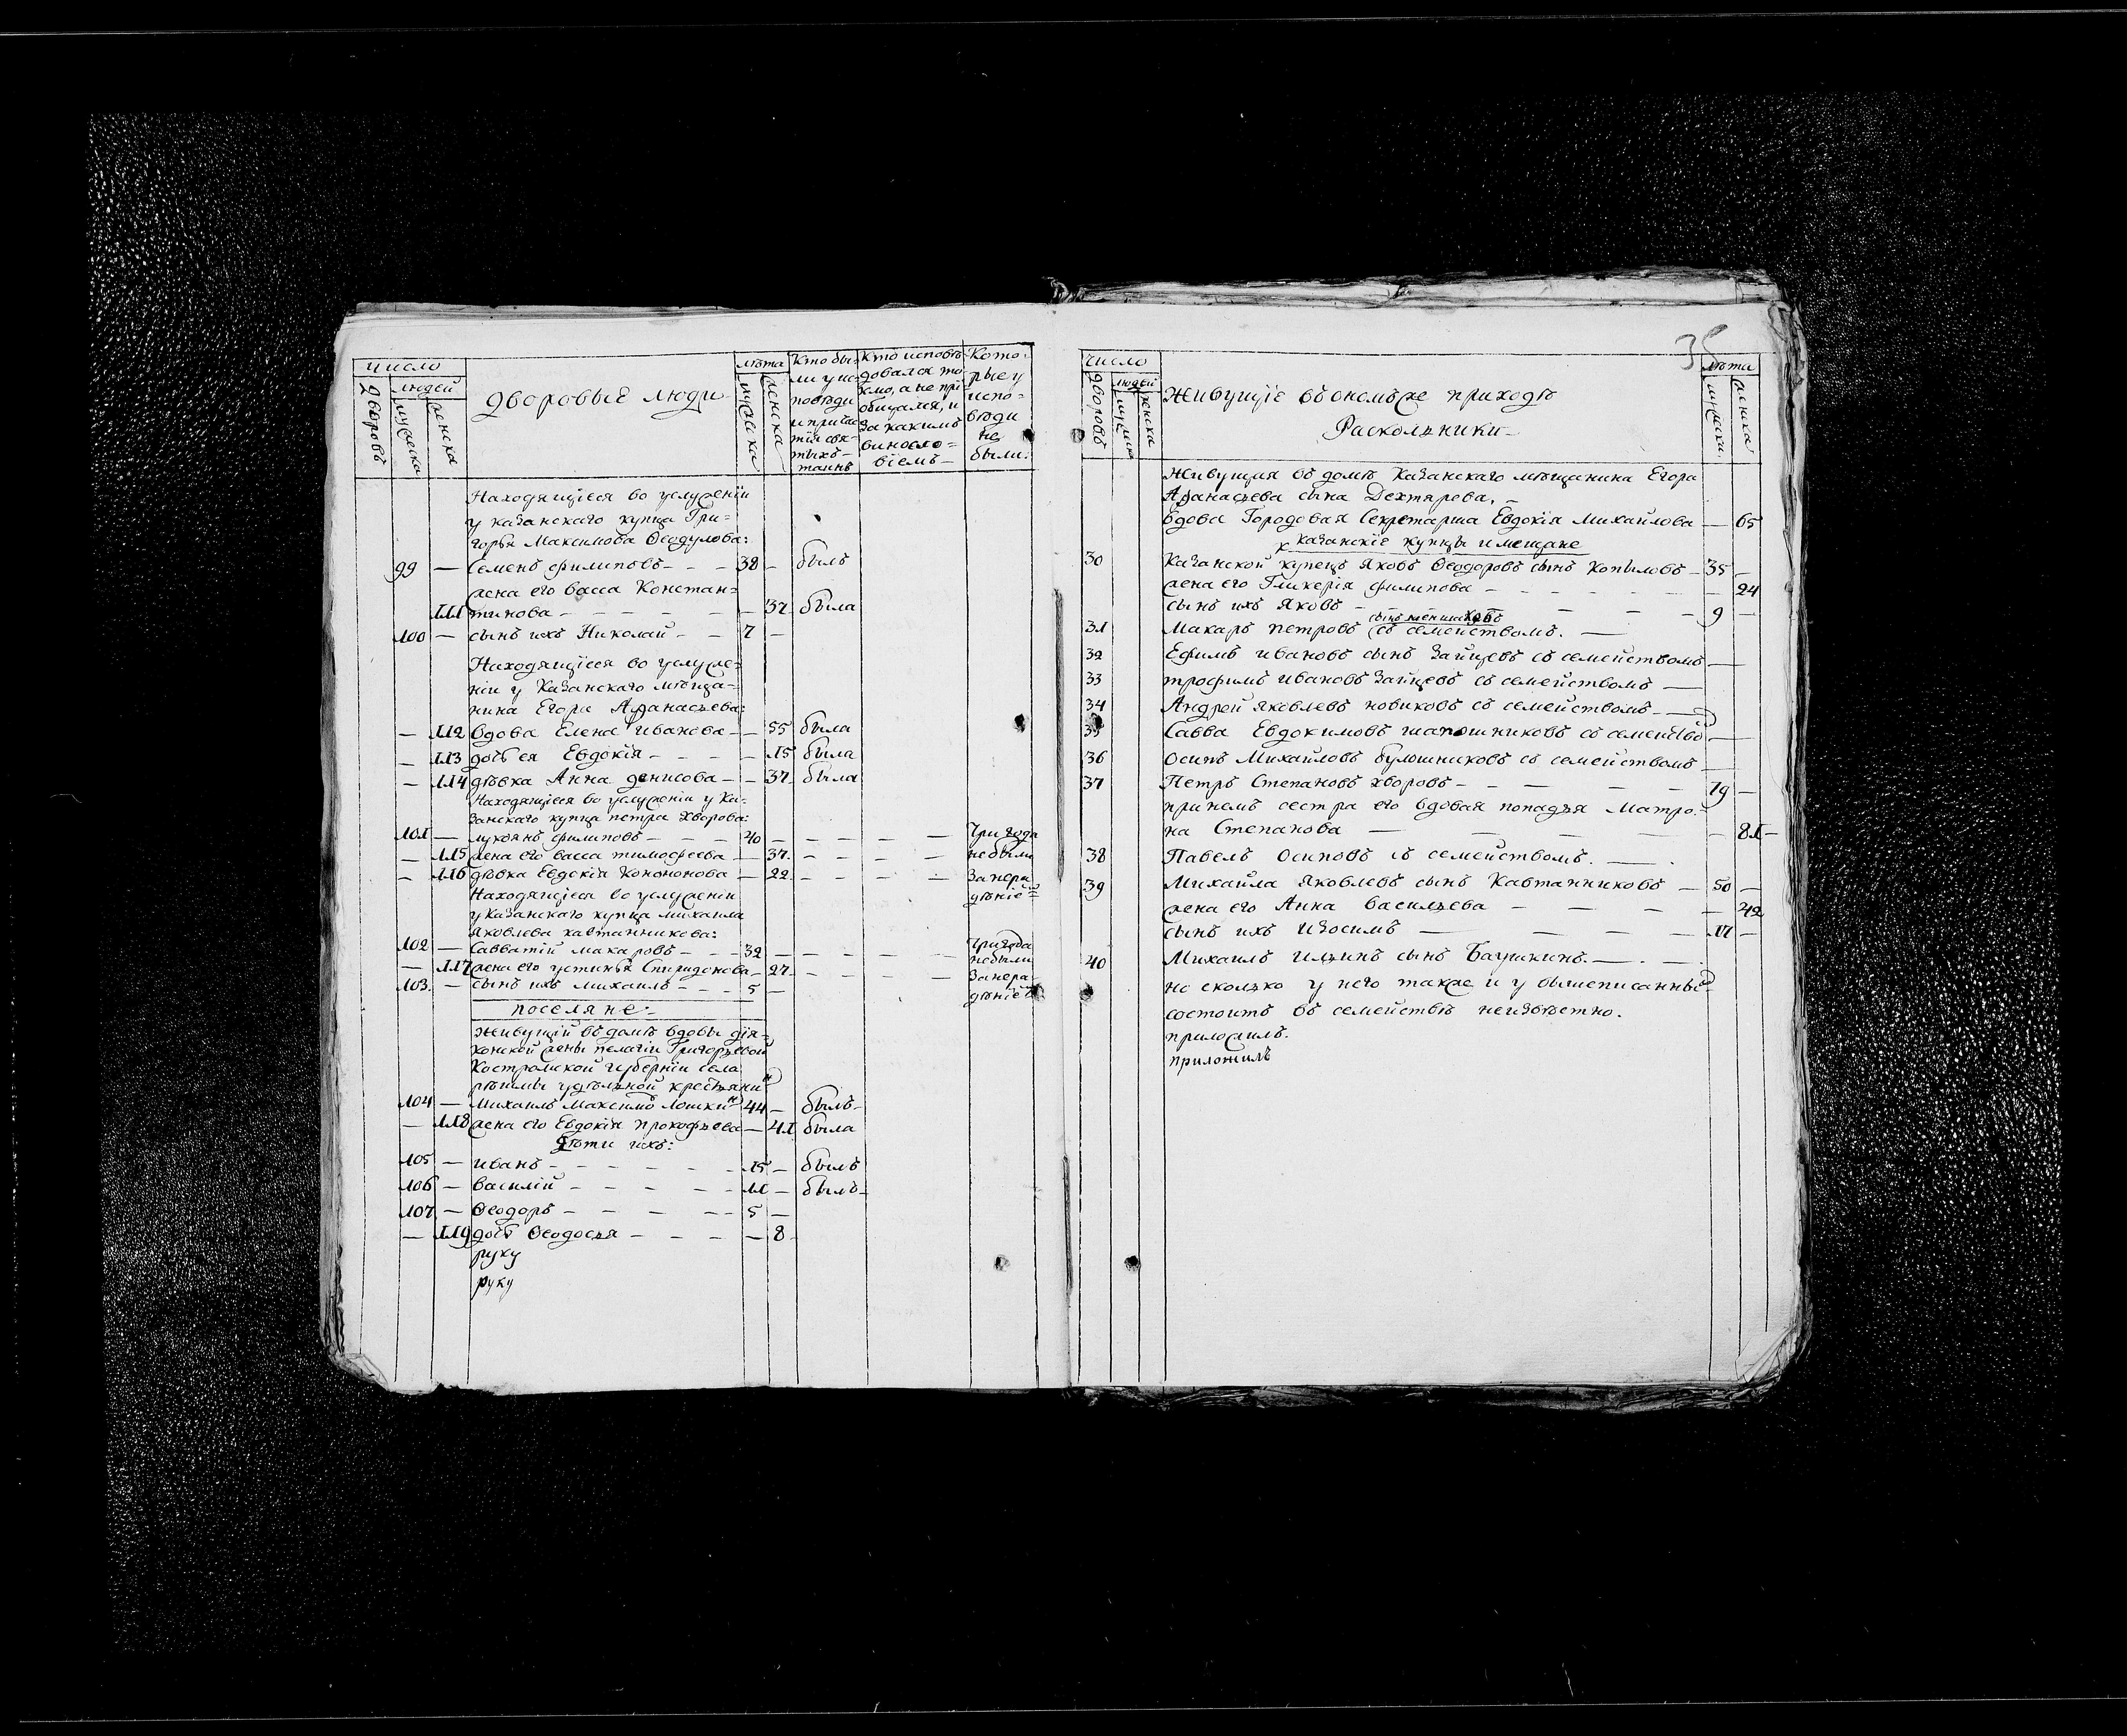 число
людей
дворовъ
мужеска
женска
дворовые люди
лѣта
мужеска
женска
Кто бы-
ли у ис-
повѣди
и прича
тїи свя-
тыхъ
таинъ
Кто исповѣ
довался то
кмо, а не прї
общался, и
за какимъ
винosло-
вїемъ
Кото-
рые у
испо-
вѣди
не
были:
Находящїеся во услуженїи
у казанскаго купца Гри-
горья Максимова Ѳеодулова:
99 — Семенъ филиповъ — — — 38 — былъ
жена его васса Констан-
111 тинова — — — — — — 37 была
100 — сынъ ихъ Николай — — 7 —
Находящїеся во услуже-
нїи у Казанскаго мѣща-
нина Егора Афанасьева:
— 112 вдова Елена Иванова — — 55 была
— 113 дочь ея Евдокїя — — — — 15 была
— 114 дѣвка Анна денисова — — 37 была
Находящїеся во услуженїи у Ка-
занскаго купца петра Хворова:
101 — лукоянъ филиповъ — — — 40 — — — — — Три года
— 115 жена его васса тимофеева — 37 — — — — небыли
— 116 дѣвка Евдокїя Кононова — 22 — — — — занера
дѣнїе
Находящїеся во услуженїи
у Казанскаго купца михаила
Яковлева кавтанникова:
102 — Савватїй макаровъ — — — 32 — — — — — Три года
небыли
— 117 жена его устинья Спиридонова — 27 — — — — занера
103 — сынъ ихъ михаилъ — — — 5 — дѣнїе
поселяне:
Живущїй въ домѣ вдовы дїя-
конской жены пелагїи Григорьевой
Костромской губернїи села
рѣшмы удѣльной крестьянин
104 — Михаилъ Максимовъ Лошкин 44 — былъ
— 118 жена его Евдокїя прокофьева — 41 была
дѣти ихъ:
105 — иванъ — — — — — — — 15 — былъ
106 — василїй — — — — — 11 — былъ
107 — Ѳеодоръ — — — — — 5 —
— 119 дочь Ѳеодосья — — — — 8
руку
руку
35
число
людей
дворовъ
женска
Живущїе въ ономъ же приходѣ
Раскольники
лѣта
мужеска
женска
Живущия въ домѣ Казанскаго мѣщанина Егора
Афанасьева сына Дехтярова,
вдова Городовая Секретарша Евдокїя Михайлова — 65
казанскїе купцы и мещане
30 Казанской купецъ Яковъ Ѳеодоровъ сынъ Копыловъ — 35 —
жена его Гликерїя филипова — — — — — 24
сынъ ихъ Яковъ — — — — 9 —
сынъ меншиковъ
31 Макаръ петровъ съ семействомъ. —
32 Ефимъ ивановъ сынъ Зайцевъ съ семействомъ —
33 трофимъ ивановъ Зайцевъ съ семействомъ —
34 Андрей яковлевъ новиковъ съ семействомъ —
35 Савва Евдокимовъ шапошниковъ съ семейство —
36 Осипъ Михайловъ булошниковъ съ семействомъ —
37 Петръ Степановъ хворовъ — — — — — 79 —
при немъ сестра его вдовая попадья Матро-
на Степанова — — — — — 81 —
38 Павелъ Осиповъ съ семействомъ. —
39 Михайла Яковлевъ сынъ Кавтанниковъ — 50 —
жена его Анна васильева — — — — 42
сынъ ихъ Изосимъ — — — — 17 —
40 Михаилъ Ильинъ сынъ Баушкинъ. — — .
но сколько у него также и у вышеписанны
состоитъ въ семействѣ неизвѣстно.
приложилъ.
приложилъ